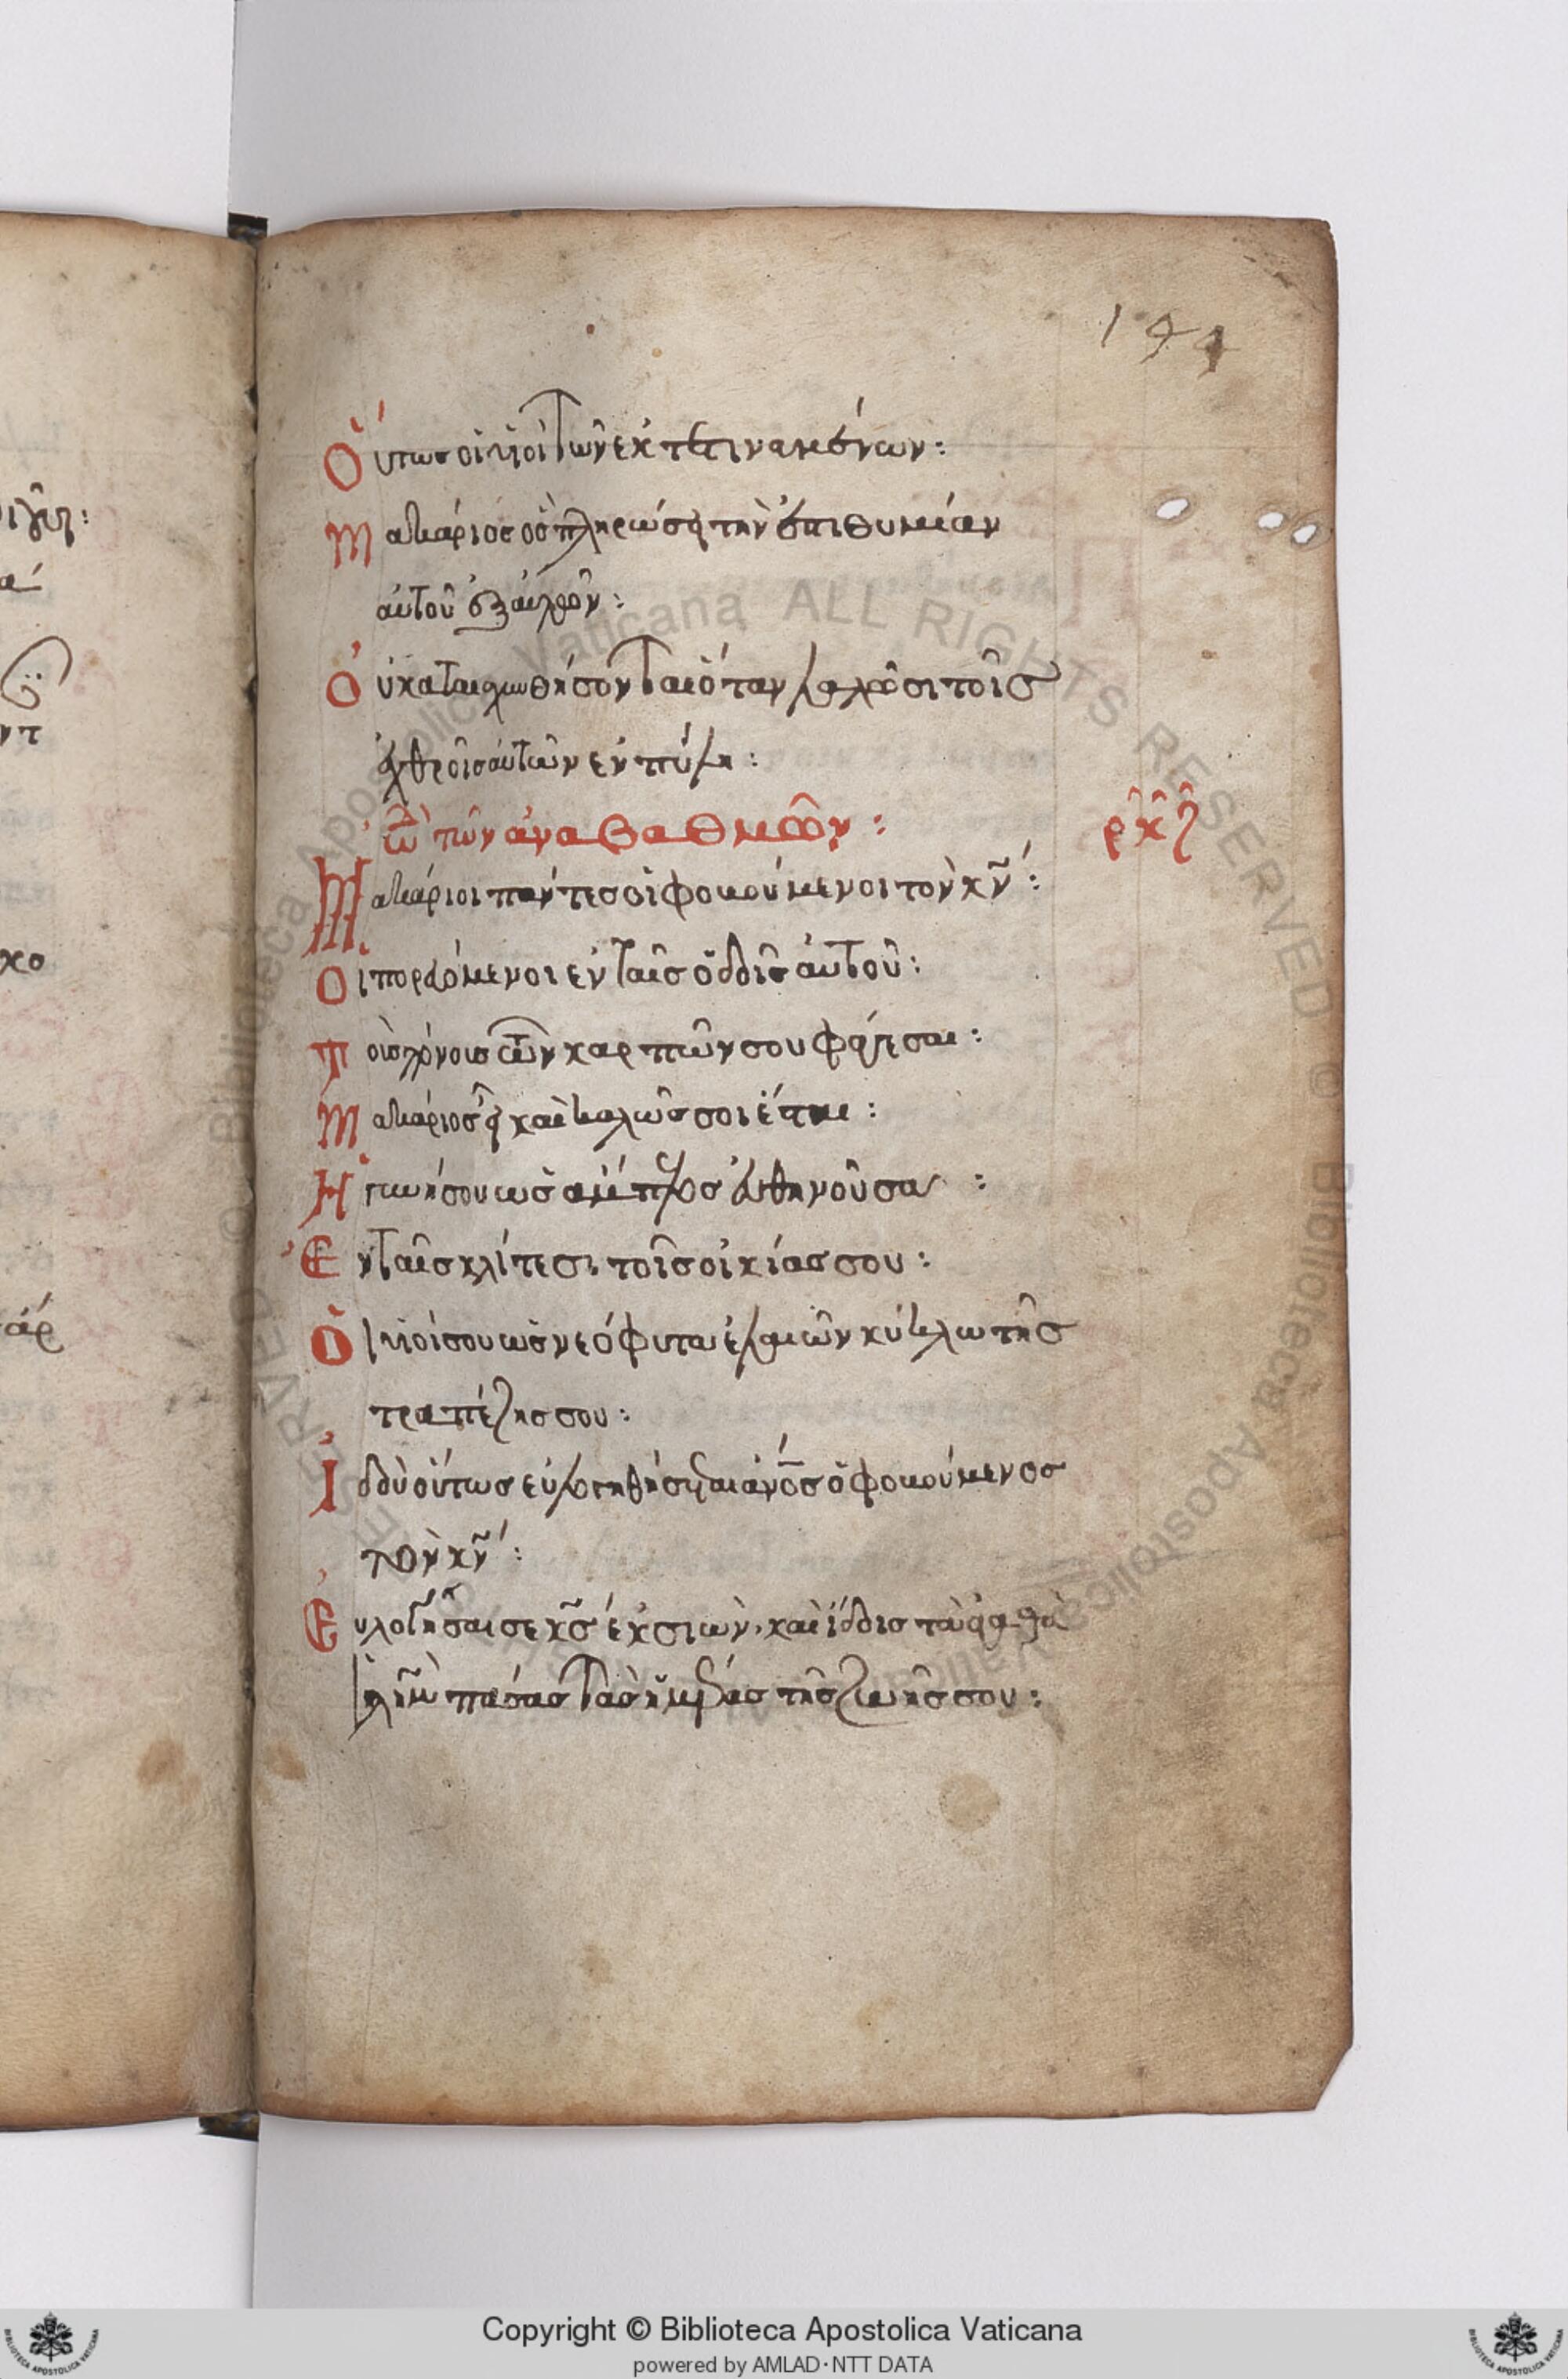 144
Οὕτως οἱ υἱοὶ τῶν ἐκτετιναγμένων:
Μακάριος ὃς πληρώσει τὴν ἐπιθυμίαν
αὐτοῦ ἐξ αὐτῶν:
Οὐ καταισχυνθήσονται ὅταν λαλῶσι τοῖς
ἐχθροῖς αὐτῶν ἐν πύλη:
ὠδὴ τῶν ἀναβαθμῶν: ρκζ
Μακάριοι πάντες οἱ φοβούμενοι τὸν κν:
Οἱ πορευόμενοι ἐν ταῖς ὁδοῖς αὐτοῦ:
Τοὺς πόνους τῶν καρπῶν σου φάγεσαι:
Μακάριος εἶ καὶ καλῶς σοι ἔσται:
Ἡ γυνή σου ὡς ἄμπελος εὐθηνοῦσα:
Ἐν ταῖς κλίτεσι τοῖς οἰκίας σου:
Οἱ υἱοί σου ὡς νεόφυτα ἐλαιῶν κύκλω τῆς
τραπέζης σου:
Ἰδοὺ οὕτως εὐλογηθήσεται ἄνος ὁ φοβούμενος
τὸν κν:
Εὐλογήσαι σε κς ἐκ σιὼν, καὶ ἴδοις τὰ ἀγαθὰ
ἱλημ πάσας τὰς ἡμέρας τῆς ζωῆς σου:
Copyright © Biblioteca Apostolica Vaticana
powered by AMLAD·NTT DATA